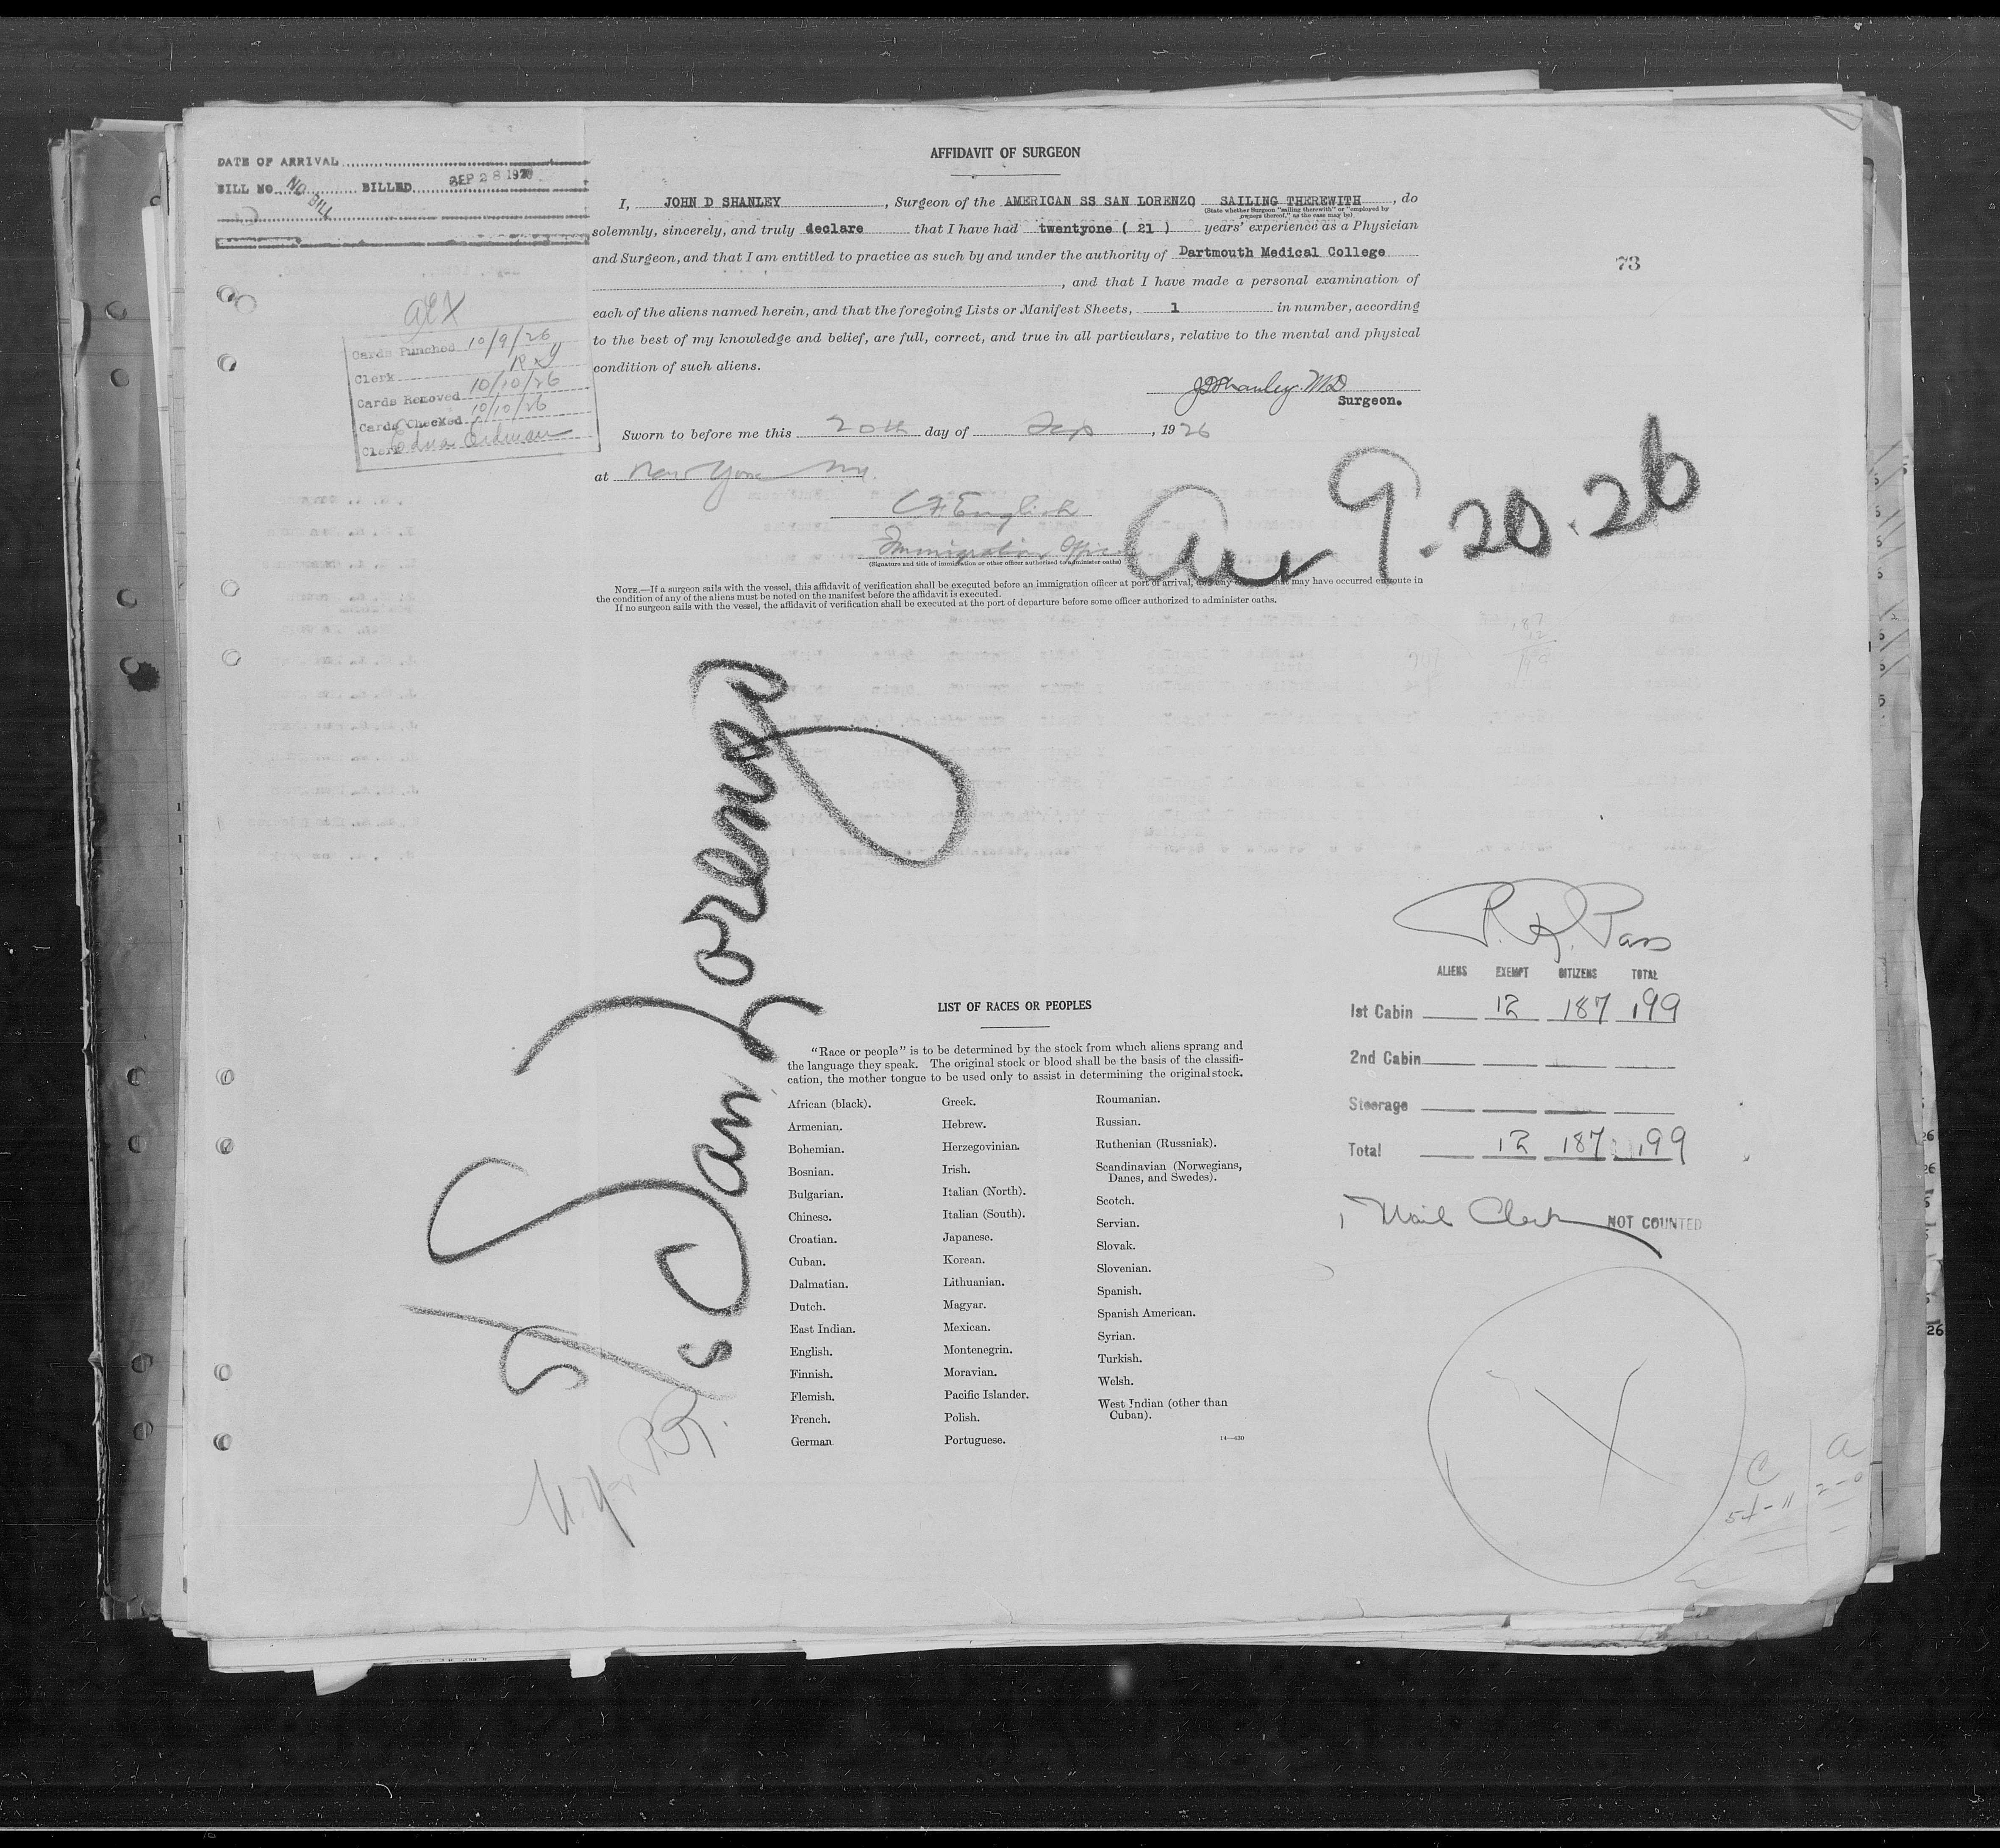 DATE OF ARRIVAL
BILL NO. NO BILL BILLED SEP 28 192
AFFIDAVIT OF SURGEON
I, JOHN D SHANLEY, Surgeon of the AMERICAN SS SAN LORENZO SAILING THEREWITH, do
(State whether Surgeon "sailing therewith" or "employed by
owners thereof," as the case may be)
solemnly, sincerely, and truly declare that I have had twentyone ( 21 ) years' experience as a Physician
and Surgeon, and that I am entitled to practice as such by and under the authority of Dartmouth Medical College
, and that I have made a personal examination of
each of the aliens named herein, and that the foregoing Lists or Manifest Sheets, 1 in number, according
to the best of my knowledge and belief, are full, correct, and true in all particulars, relative to the mental and physical
condition of such aliens.
JDShanley. MD
Surgeon.
Sworn to before me this 20th day of Sep, 1926
at New York N.Y.
CF English
Immigration Officer
(Signature and title of immigration or other officer authorized to administer oaths)
NOTE.—If a surgeon sails with the vessel, this affidavit of verification shall be executed before an immigration officer at port of arrival, and any may have occurred enroute in
the condition of any of the aliens must be noted on the manifest before the affidavit is executed.
If no surgeon sails with the vessel, the affidavit of verification shall be executed at the port of departure before some officer authorized to administer oaths.
73
Cards Punched 10/9/26
Clerk
Cards Removed 10/10/26
Cards Checked 10/10/26
Clerk Edna
Arr 9.20.26
187
12
199
S/S San Lorenzo
N.Y. P.R.
P.R. Pass
ALIENS EXEMPT CITIZENS TOTAL
1st Cabin 12 187 199
2nd Cabin
Steerage
Total 12 187 199
1 Mail Clerk NOT COUNTED
X
C A
54-11 2-0
LIST OF RACES OR PEOPLES
"Race or people" is to be determined by the stock from which aliens sprang and
the language they speak. The original stock or blood shall be the basis of the classifi-
cation, the mother tongue to be used only to assist in determining the original stock.
African (black).
Armenian.
Bohemian.
Bosnian.
Bulgarian.
Chinese.
Croatian.
Cuban.
Dalmatian.
Dutch.
East Indian.
English.
Finnish.
Flemish.
French.
German
Greek.
Hebrew.
Herzegovinian.
Irish.
Italian (North).
Italian (South).
Japanese.
Korean.
Lithuanian.
Magyar.
Mexican.
Montenegrin.
Moravian.
Pacific Islander.
Polish.
Portuguese.
Roumanian.
Russian.
Ruthenian (Russniak).
Scandinavian (Norwegians,
Danes, and Swedes).
Scotch.
Servian.
Slovak.
Slovenian.
Spanish.
Spanish American.
Syrian.
Turkish.
Welsh.
West Indian (other than
Cuban).
14—430
26